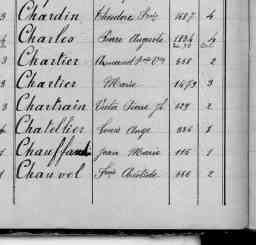 Chardin Théodore 1687 4
4 Charles Pierre Auguste 1834 4
3 Chartier Armand 558 2
3 Chartier Marie 1479 3
3 Chartrain Victor Pierre 629 2
Chatellier Louis Ange 836 1
1 Chauffand Jean Marie 116 1
1 Chauvel Aristide 686 2